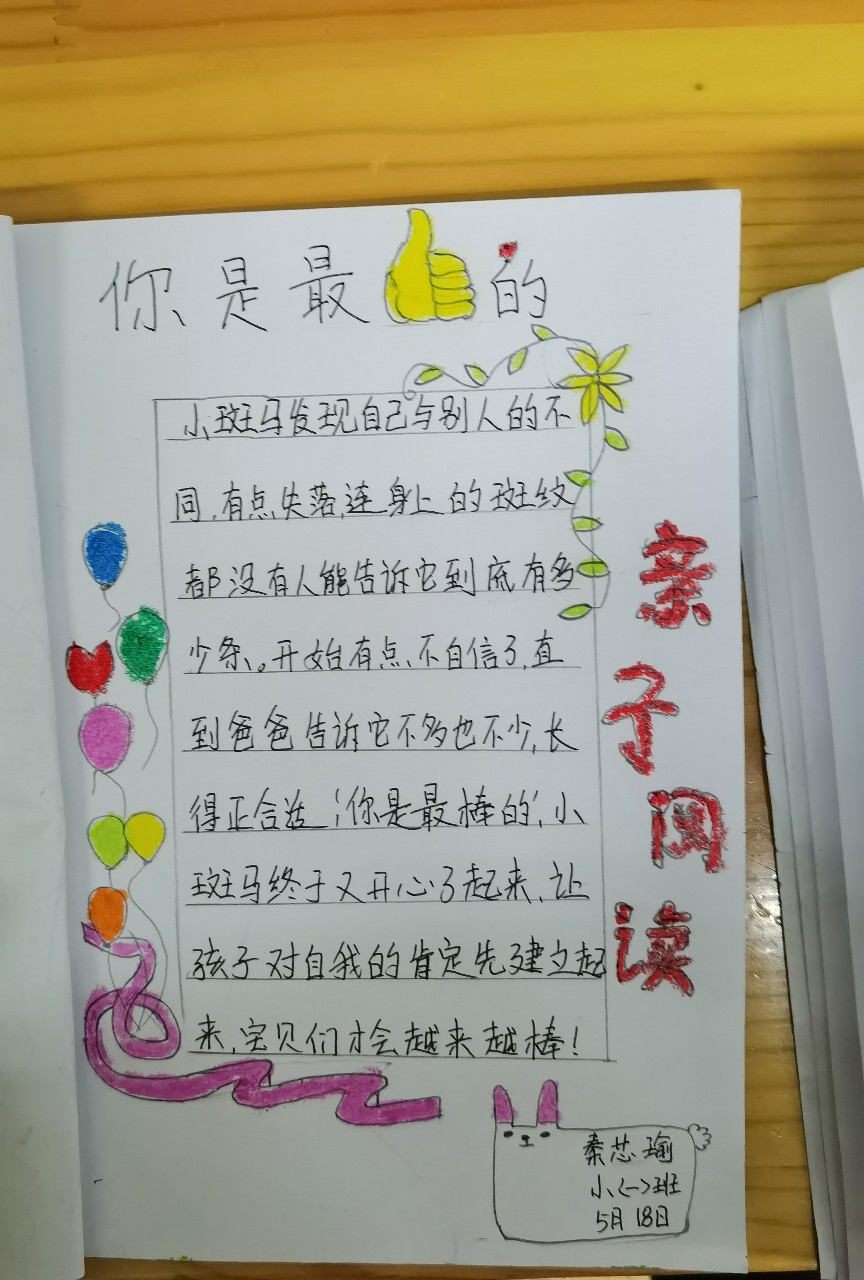 你是最👍的
小斑马发现自己与别人的不
同,有点失落,连身上的斑纹
都没有人能告诉它到底有多
少条。开始有点不自信了,直
到爸爸告诉它不多也不少,长
得正合适,“你是最棒的”,小
斑马终于又开心了起来,让
孩子对自我的肯定先建立起
来,宝贝们才会越来越棒!
亲子阅读
秦芯瑜
小〈一〉班
5月18日